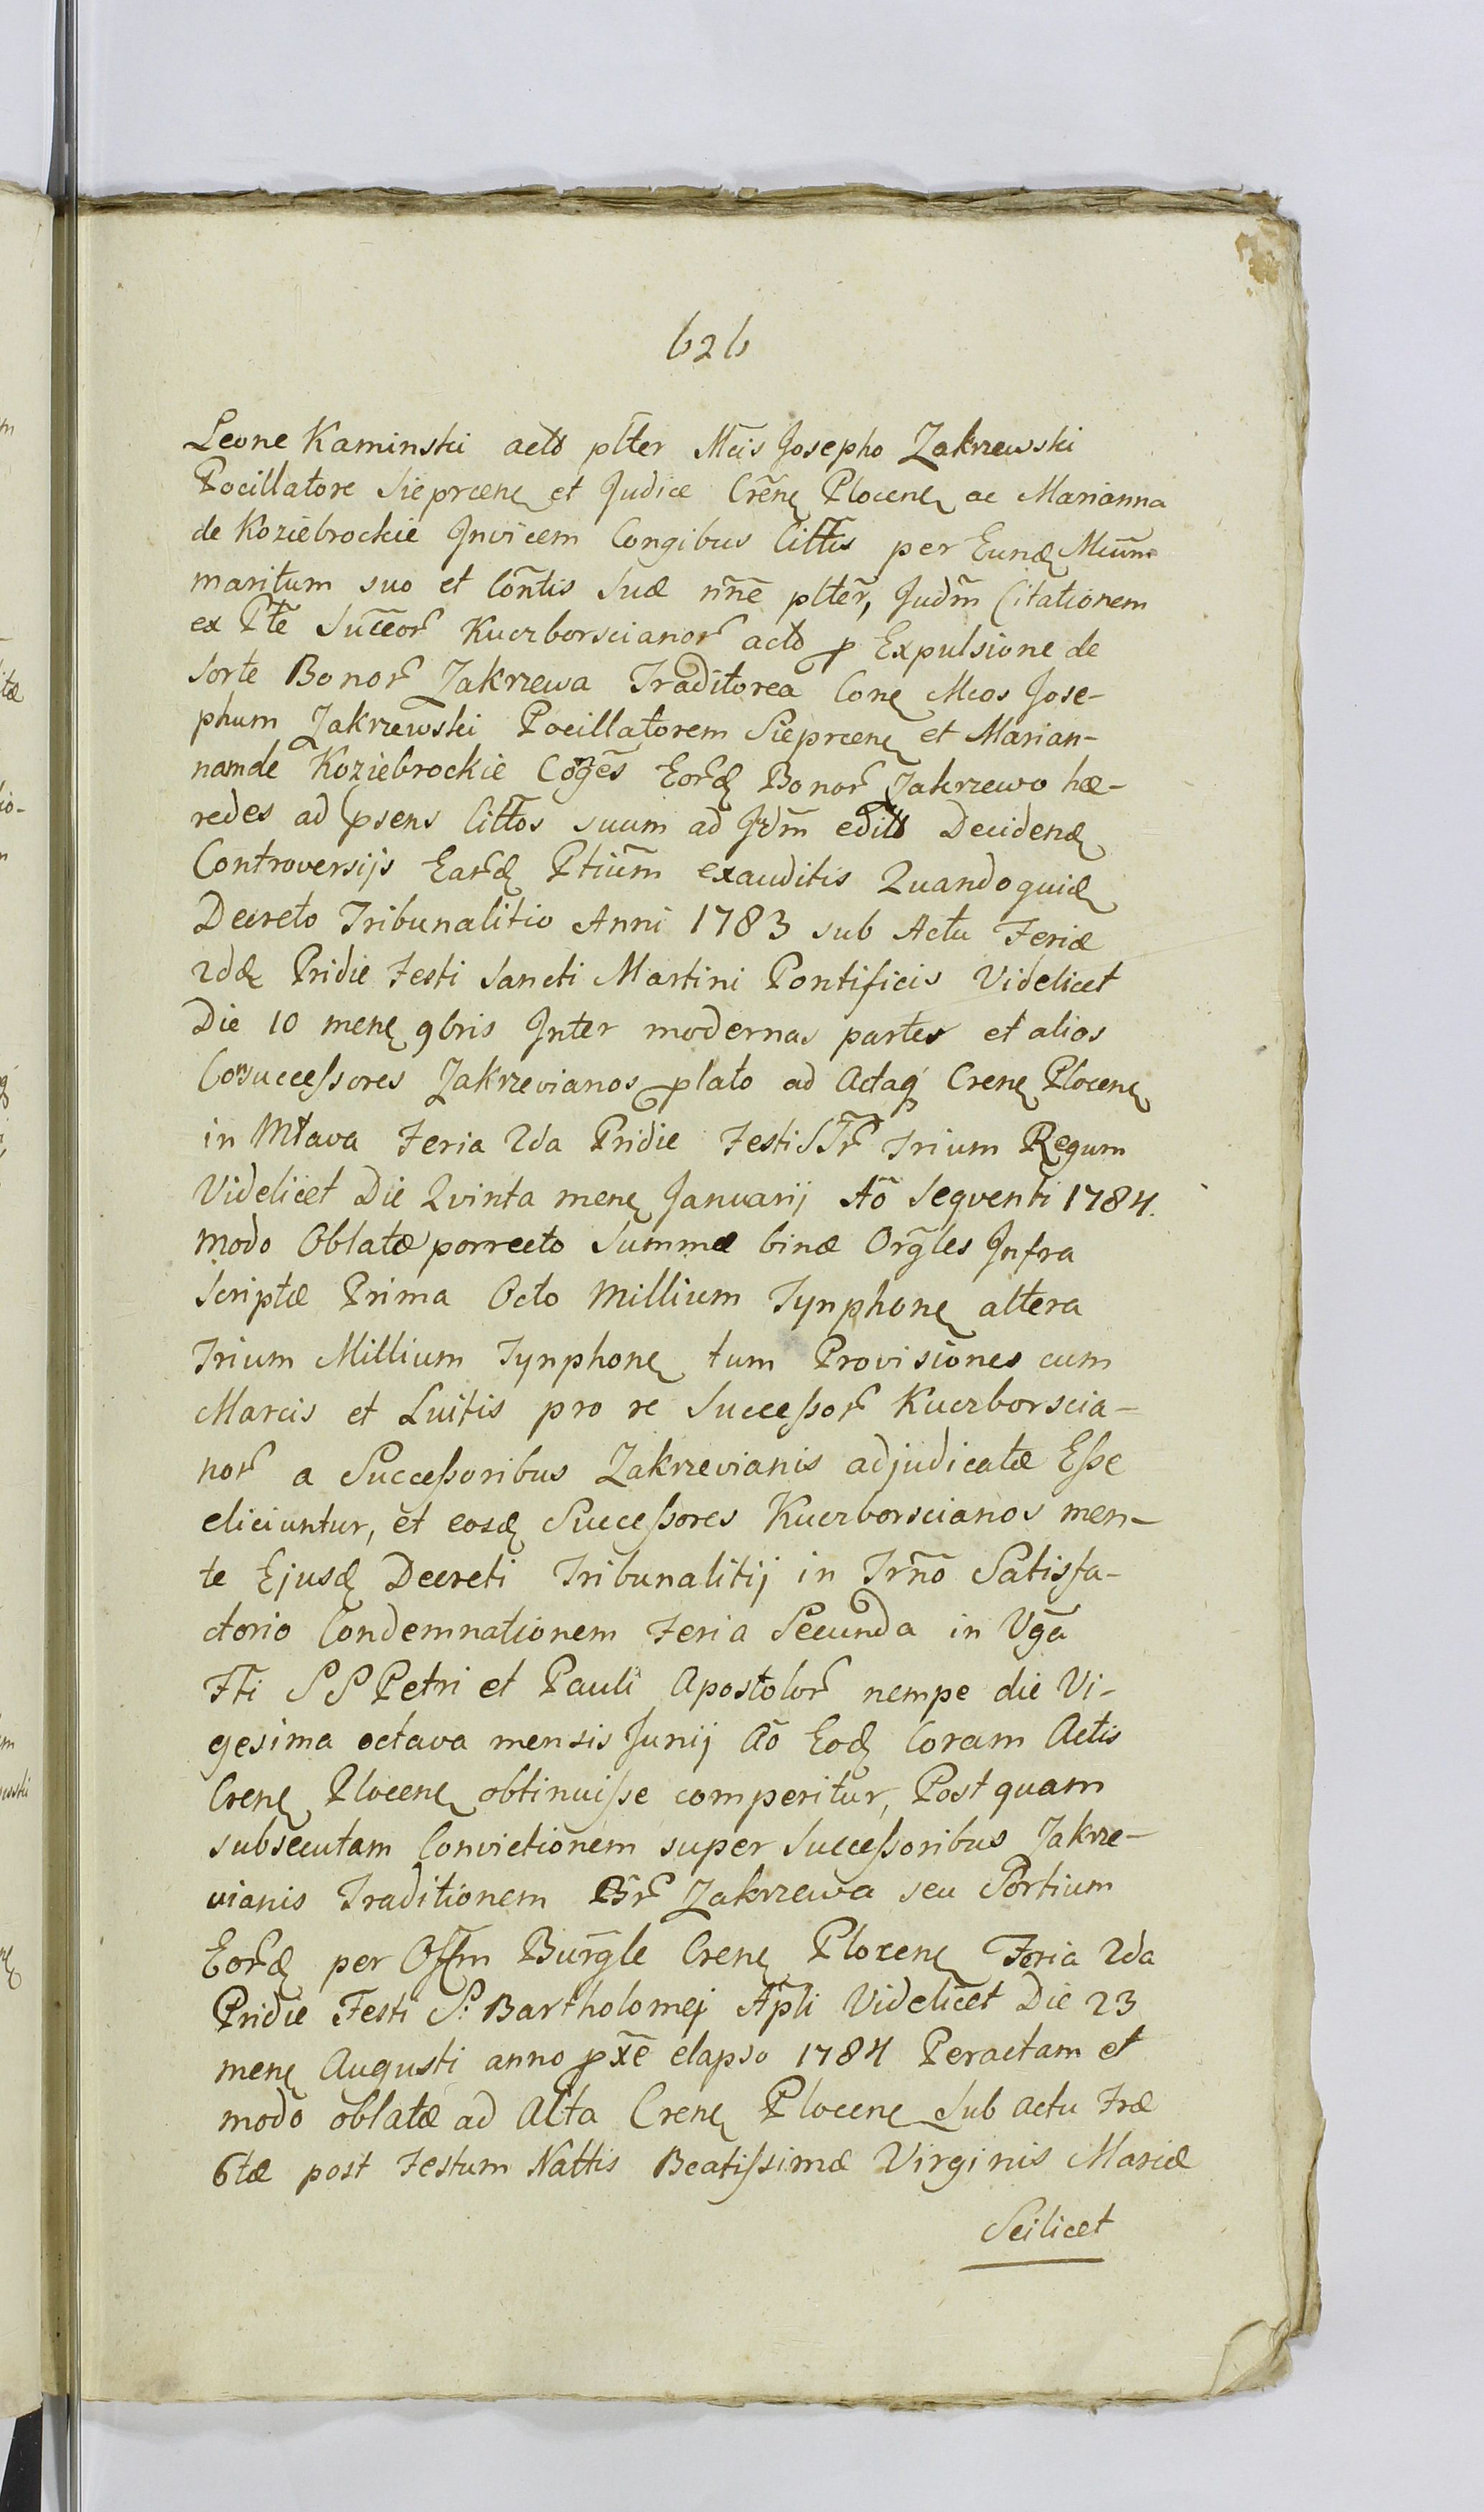 626
Leone Kaminski acto plter Mcis Josepho Zakrzewski
Pocillatore Sieprcen et Judice Cren Plocen ac Marianna
de Koziebrockie Invicem Congibus Cittis per Eund Mcum
maritum suo et Contis Suæ nne plter, Judm Citationem
ex Pte Succeor Kuczborscianor acto p Expulsione de
Sorte Bonor Zakrzewa Traditorea Con Mcos Jose-
phum Zakrzewski Pocillatorem Sieprcen et Marian-
nam de Koziebrockie Coges Eord Bonor Zakrzewo hæ-
redes ad psens Cittos suum ad Jdm edito Decidend
Controversijs Eard Ptium exauditis Quandoquid
Decreto Tribunalitio Anni 1783 sub Actu Feriæ
2dæ Pridie Festi Sancti Martini Pontificis Videlicet
Die 10 men 9bris Inter modernas partes et alios
Consuccessores Zakrzevianos plato ad Actaq Cren Plocen
in Mława Feria 2da Pridie Festi SSr Trium Regum
Videlicet Die Qvinta men Januarij Ao Seqventi 1784.
modo Oblatæ porrecto Summæ binæ Orgles Infra
Scriptæ Prima Octo Millium Tynphon altera
Trium Millium Tynphon tum Provisiones cum
Marcis et Luitis pro re Successor Kuczborscia-
nor a Successoribus Zakrzevianis adjudicatæ Esse
eliciuntur, et eosd Successores Kuczborscianos men-
te Ejusd Decreti Tribunalitij in Trno Satisfa-
ctorio Condemnationem Feria Secunda in Vga
Fti SS Petri et Pauli Apostolor nempe die Vi-
gesima octava mensis Junij Ao Eod Coram Actis
Cren Plocen obtinuisse comperitur, Post quam
subsecutam Convictionem super Successoribus Zakrze-
vianis Traditionem Br Zakrzewa seu Sortium
Eord per Offm Burgle Cren Plocen Feria 2da
Pridie Festi S. Bartholomej Apli Videlicet Die 23
men Augusti anno pxe elapso 1784 Peractam et
modo oblatæ ad Acta Cren Plocen Sub actu Fræ
6tæ post Festum Nattis Beatissimæ Virginis Mariæ
Scilicet